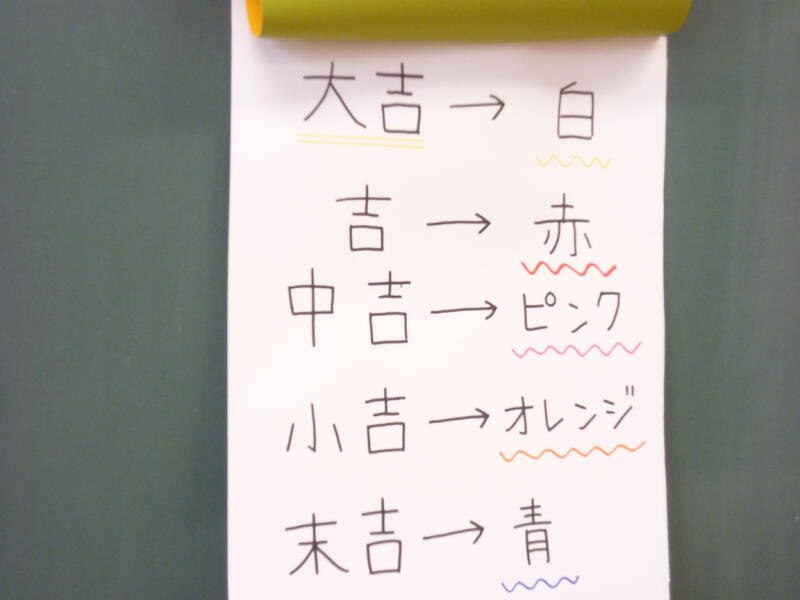 大吉→白
吉→赤
中吉→ピンク
小吉→オレンジ
末吉→青